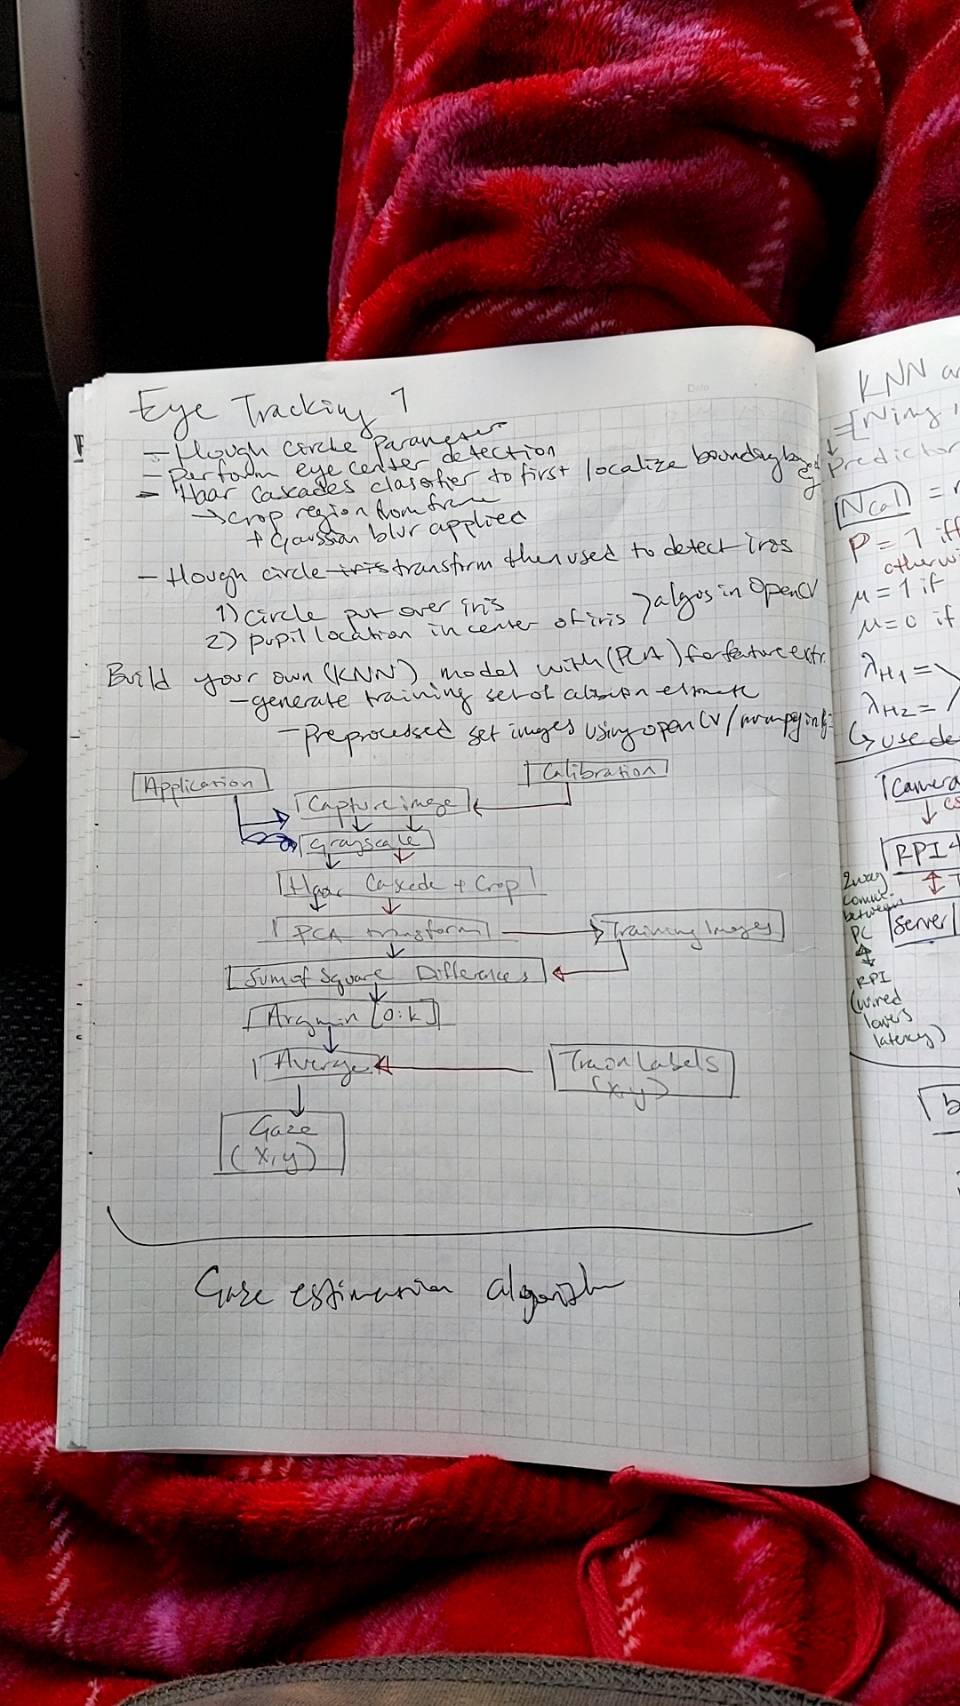 Eye Tracking 1
- Hough Circle Parameter
- Perform eye center detection
- Haar Cascades classifier to first localize bounding box
→ crop region from frame
+ Gaussian blur applied
- Hough circle iris transform then used to detect iris
1) circle put over iris
2) pupil location in center of iris } algos in OpenCV
Build your own (KNN) model with (PCA) for feature extr.
- generate training set of
- Preprocessed set images using openCV/numpy in
Application
Calibration
Capture image
Grayscale
Haar Cascade + Crop
PCA transform
Training Images
Sum of Square Differences
Argmin [0:k]
Average
Train Labels
(x,y)
Gaze
(x,y)
Gaze estimation algorithm
KNN
predictor
Ncal =
P = 1 iff
μ = 1 if
μ = 0 if
λH1 =
λH2 =
↳ use
Camera
RPI 4
Server
2 way
between
PC
RPI
(wired
lowers
latency)